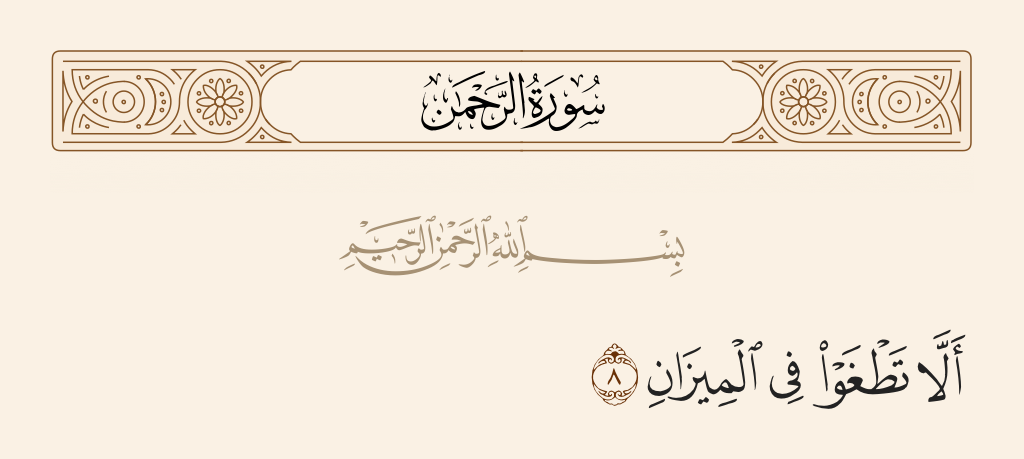 سُورَةُ الرَّحْمَٰن
بِسْمِ ٱللَّهِ ٱلرَّحْمَٰنِ ٱلرَّحِيمِ
أَلَّا تَطْغَوْا۟ فِى ٱلْمِيزَانِ ٨